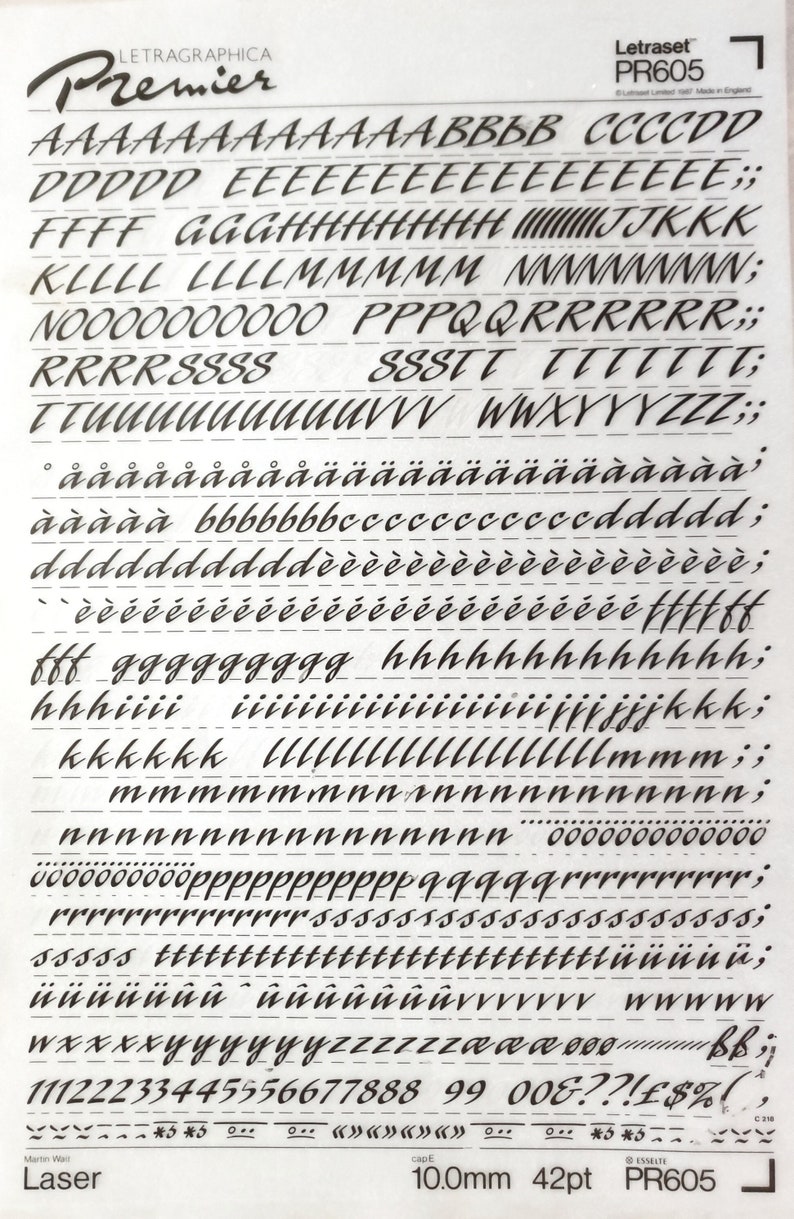 LETRAGRAPHICA
Premier
Letraset
PR605
© Letraset Limited 1987 Made in England
AAAAAAAAAAAAABBbB CCCCDD
DDDDD EEEEEEEEEEEEEEEEEE;;
FFFF GGGHHHHHHHH IIIIIIIIIIJJKKK
KLLLL LLLLMMMMMM NNNNNNNNNN;
NOOOOOOOOOO PPPQQRRRRRRR;;
RRRRSSSS SSSTT TTTTTTT;
TTUUUUUUUUUUUVVV WWXYYYZZZ;;
° åååååååååååääääääääääààààà;
ààààà bbbbbbbccccccccccccddddd;
dddddddddddddèèèèèèèèèèèèèèèèèèè;
` ` èèéééééééééééééééééééffffff
fff ggggggggg hhhhhhhhhhhhhh;
hhhiiii iiiiiiiiiiiiiiiiiiiijjjjjjkkk;
kkkkkk lllllllllllllllllllllmmm;;
mmmmmmmnnnnnnnnnnnnnnn;
nnnnnnnnnnnnnnnn ööööööööööööö
ööööööööööppppppppppppqqqqqrrrrrrrrrr;
rrrrrrrrrrrrrrsssssssssssssssssssssss;
sssss ttttttttttttttttttttttttüüüüüû;
üüüüüüûûû ˆ ûûûûûûûvvvvvvv wwwww
wxxxxyyyyyyyzzzzzzzæææøøø//////////ßß;
11122233445556677888 99 00&??!£$%(,
«»«»«»«»
C 218
Martin Wait
Laser
cap E
10.0mm 42pt
ESSELTE
PR605